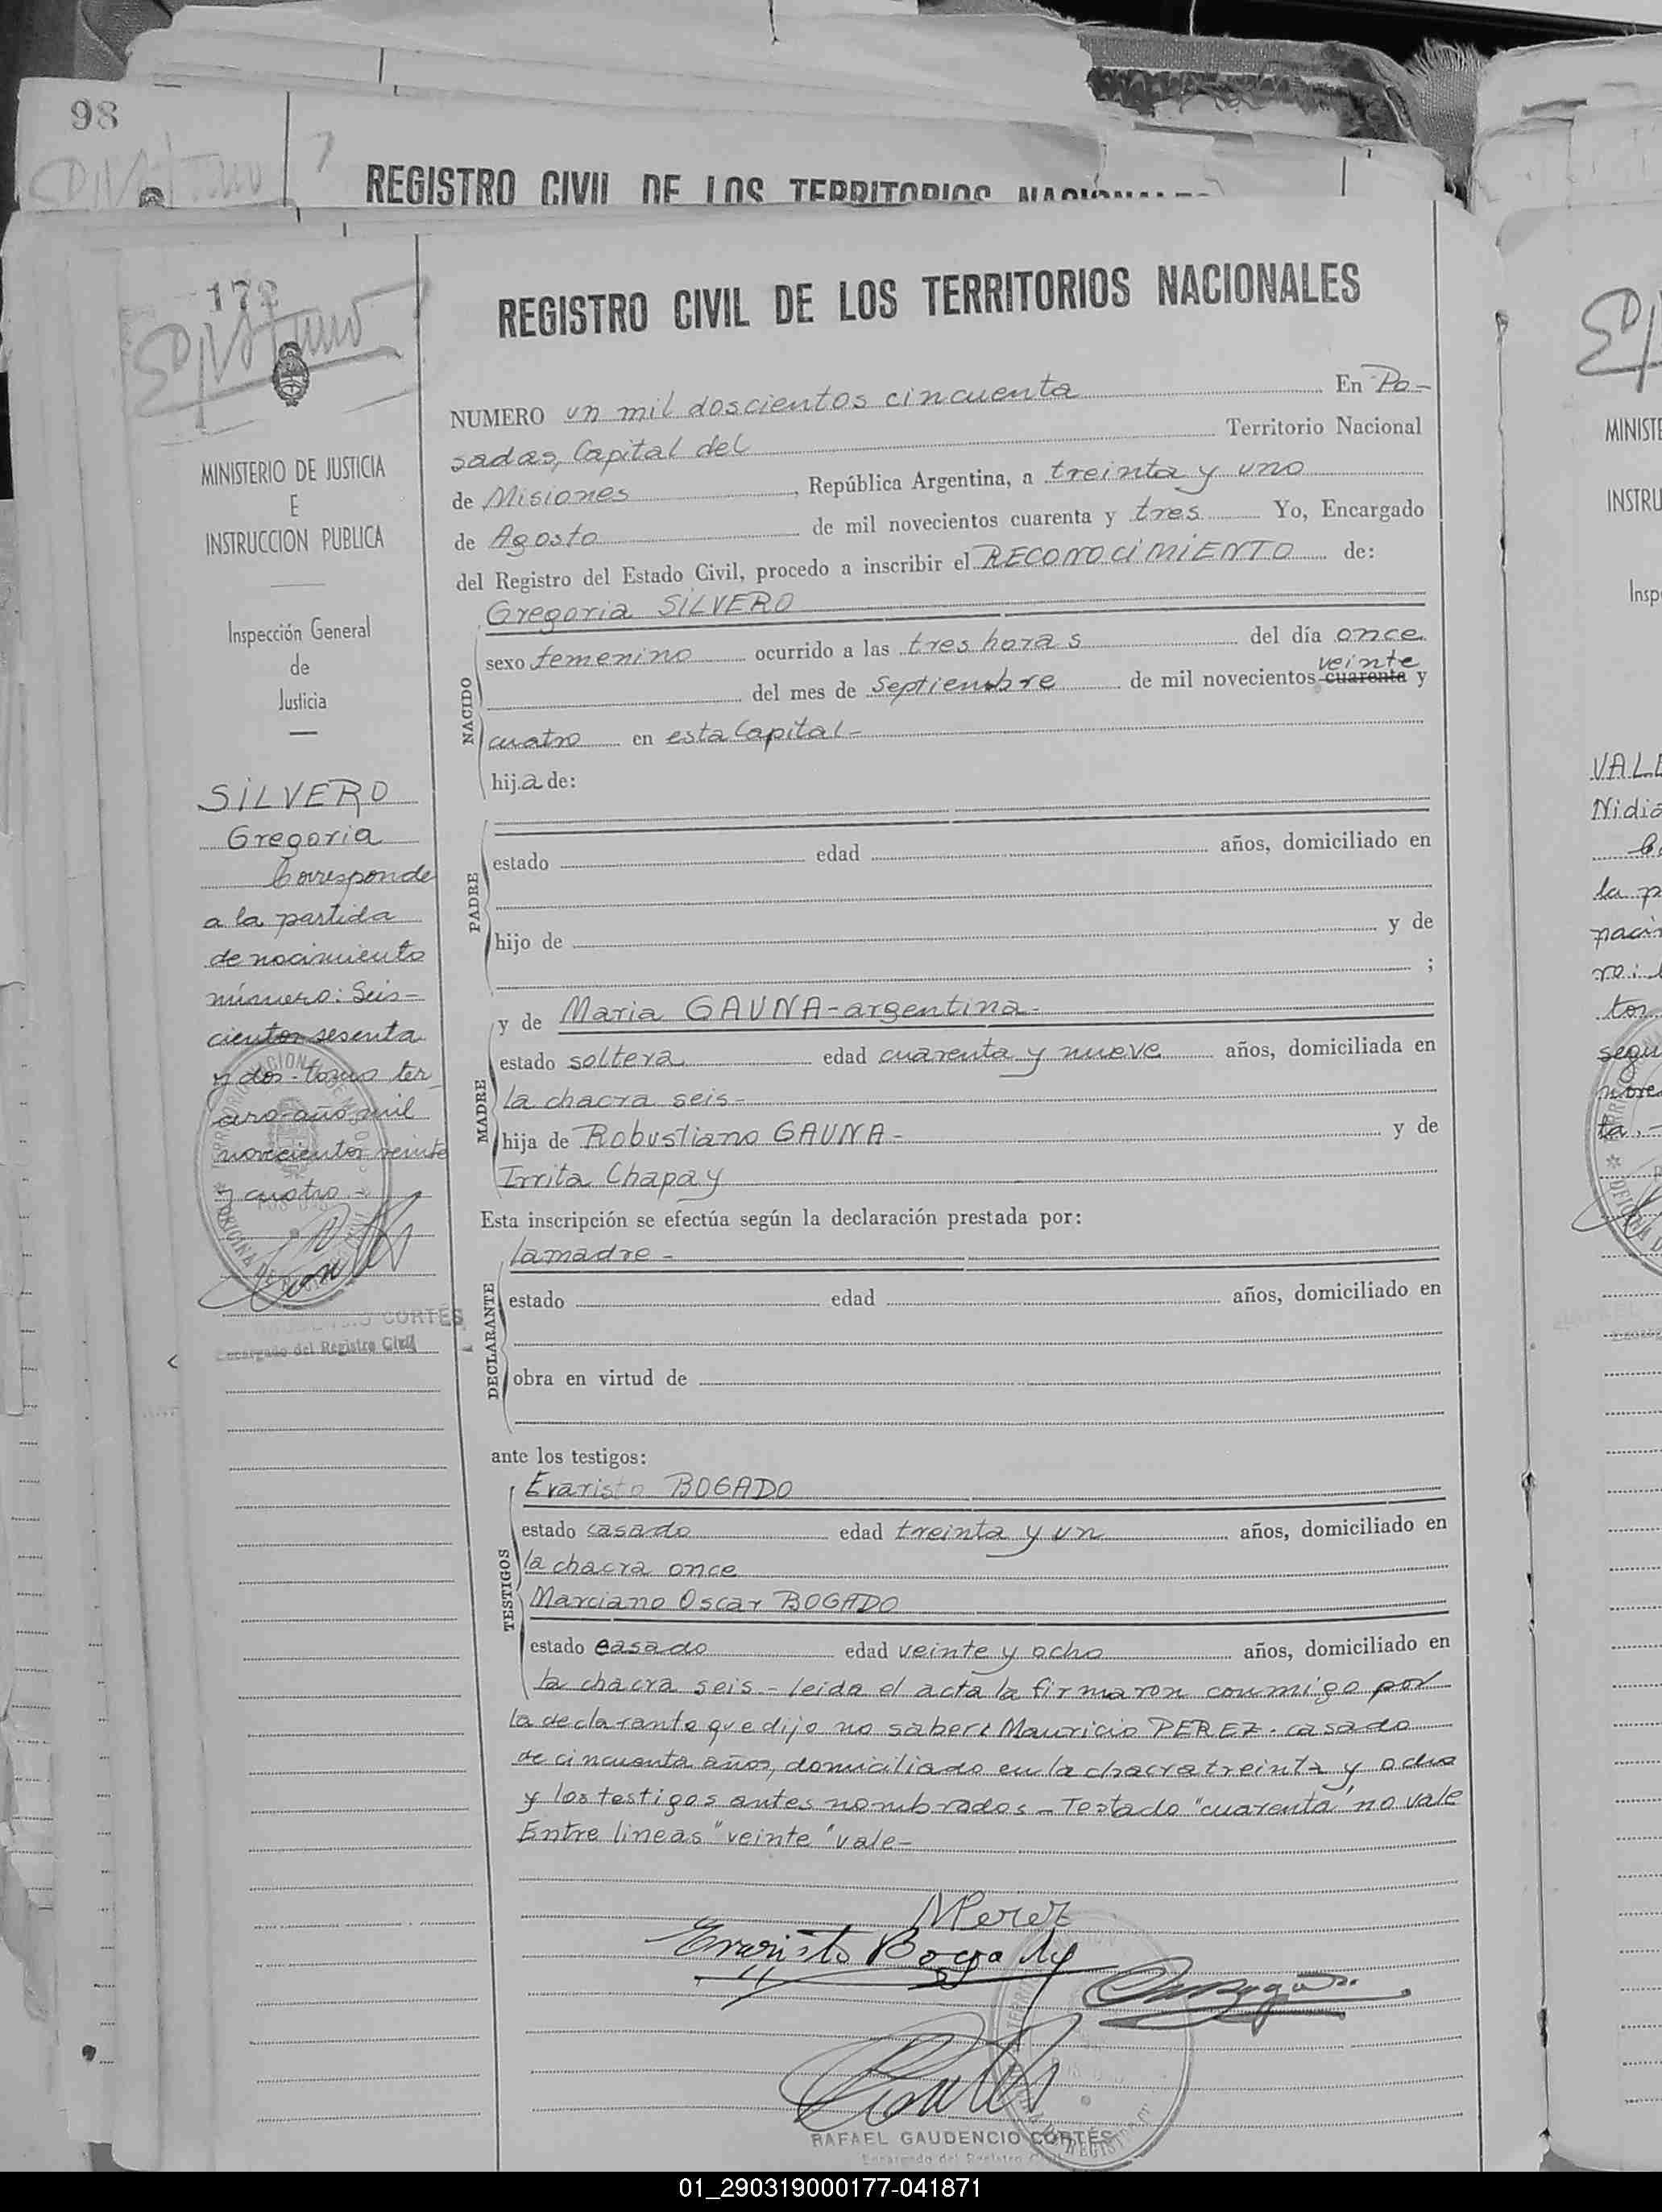 98
REGISTRO CIVIL DE LOS TERRITORIOS NACIONALES
172
MINISTERIO DE JUSTICIA
E
INSTRUCCION PUBLICA
Inspección General
de
Justicia
SILVERO
Gregoria
Corresponde
a la partida
de nacimiento
número: Seis-
cientos sesenta
y dos - tomo ter-
cero - año mil
novecientos veinte
y cuatro.-
CORTÉS
Encargado del Registro Civil
REGISTRO CIVIL DE LOS TERRITORIOS NACIONALES
NUMERO un mil doscientos cincuenta En Po-
sadas, Capital del Territorio Nacional
de Misiones, República Argentina, a treinta y uno
de Agosto de mil novecientos cuarenta y tres Yo, Encargado
del Registro del Estado Civil, procedo a inscribir el RECONOCIMIENTO de:
Gregoria SILVERO
NACIDO
sexo femenino ocurrido a las tres horas del día once
veinte
del mes de Septiembre de mil novecientos cuarenta y
cuatro en esta Capital-
hija de:
PADRE
estado edad años, domiciliado en
hijo de y de
;
y de Maria GAUNA-argentina-
MADRE
estado soltera edad cuarenta y nueve años, domiciliada en
la chacra seis-
hija de Robustiano GAUNA- y de
Irrita Chapay
Esta inscripción se efectúa según la declaración prestada por:
la madre -
DECLARANTE
estado edad años, domiciliado en
obra en virtud de
ante los testigos:
Evaristo BOGADO
TESTIGOS
estado casado edad treinta y un años, domiciliado en
la chacra once
Marciano Oscar BOGADO
estado casado edad veinte y ocho años, domiciliado en
la chacra seis.- leida el acta la firmaron conmigo por
la declarante que dijo no saber: Mauricio PEREZ. casado
de cincuenta años, domiciliado en la chacra treinta y ocho
y los testigos antes nombrados - Testado "cuarenta" no vale
Entre lineas "veinte" vale-
MPerez
Evaristo Bogado
RAFAEL GAUDENCIO CORTÉS
Encargado del Registro Civil
MINISTE
INSTRU
Insp
VALE
Nidia
la p
naci
tos
segu
nove
ta.-
01_290319000177-041871